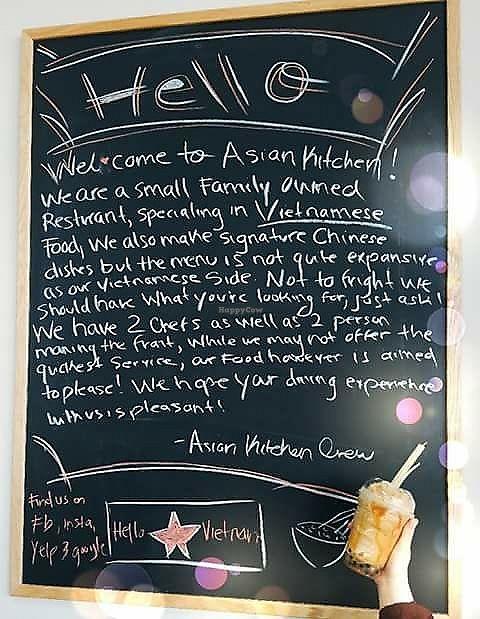 Hello
Welcome to Asian Kitchen!
We are a small Family owned
Resturant, specialing in Vietnamese
Food, We also make signature Chinese
dishes but the menu is not quite expansive
as our Vietnamese Side. Not to fright we
Should have What you're looking for, just ask!
We have 2 Chefs as well as 2 person
maning the front, While we may not offer the
quickest Service, our Food however is aimed
to please! We hope your dining experience
with us is pleasant!
- Asian Kitchen Crew
Find us on
Fb, insta,
Yelp & google
Hello Vietnam
HappyCow